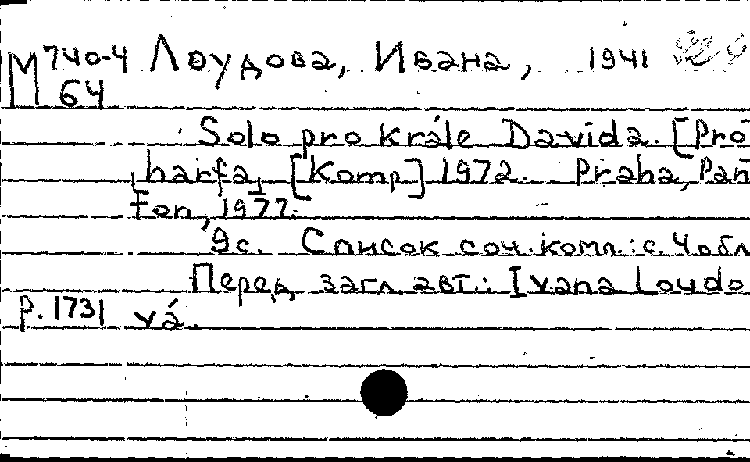 М 740-4 Лоудова, Ивана, 1941
64
Solo pro krále Davida. [Pro
harfa, [Komp] 1972. Praha, Pan
ton, 1977.
9с. Список соч. комп.: с. 4 обл
Перед загл. авт.: Ivana Loudo
р. 1731 vá.